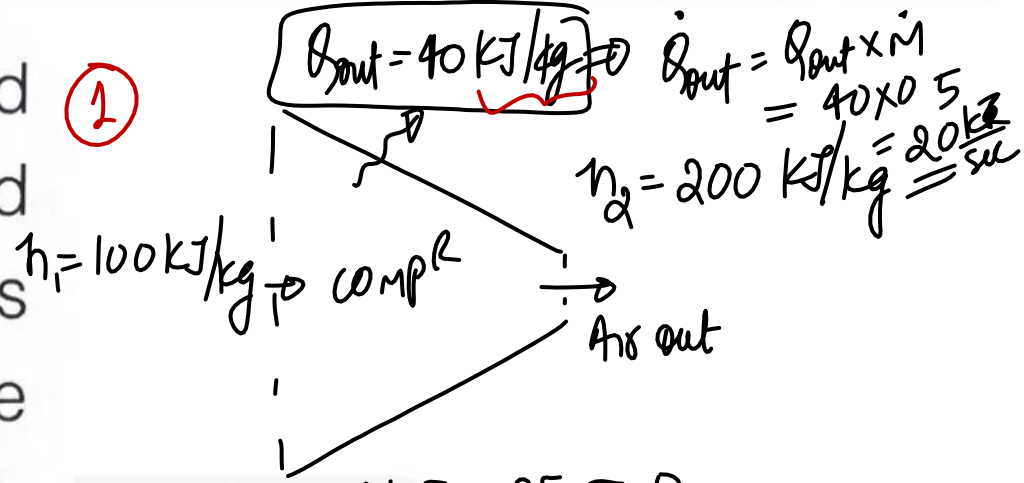 d
①
Qout = 40 KJ/kg ⇒ Q̇out = Qout × Ṁ
= 40×0 5
= 20 kJ/sec
d
h₂ = 200 KJ/kg
h₁ = 100 KJ/kg → compR
s
Air out
e